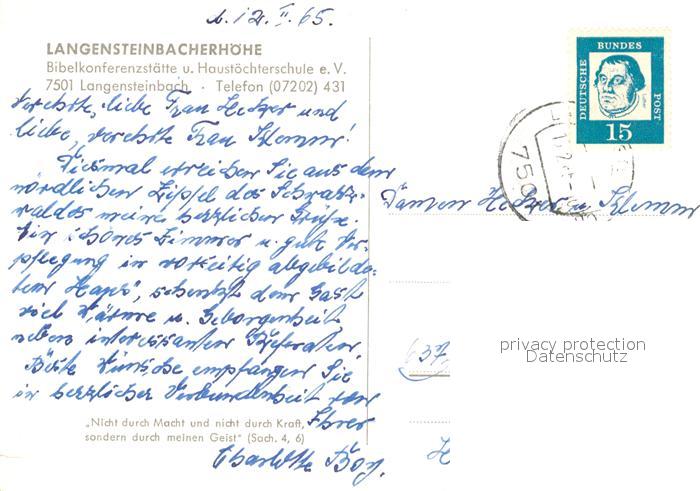 d. 12. II. 65.
LANGENSTEINBACHERHÖHE
Bibelkonferenzstätte u. Haustöchterschule e. V.
7501 Langensteinbach · Telefon (07202) 431
Verehrte, liebe Frau Hetzer und
liebe, verehrte Frau Klemm!
Diesmal erreichen Sie aus dem
nördlichen Zipfel des Schwarz-
waldes meine herzlichen Grüße.
Ein schönes Zimmer u. gute Ver-
pflegung im vorseitig abgebilde-
ten Haus, schenkt dem Gast
viel Wärme u. Geborgenheit
neben interessanten Referaten.
Beste Wünsche empfangen Sie
in herzlicher Verbundenheit von
Ihrer
Charlotte
„Nicht durch Macht und nicht durch Kraft,
sondern durch meinen Geist" (Sach. 4, 6)
DEUTSCHE BUNDES POST
15
750
Damen Hetzer u. Klemm
637
H
privacy protection
Datenschutz